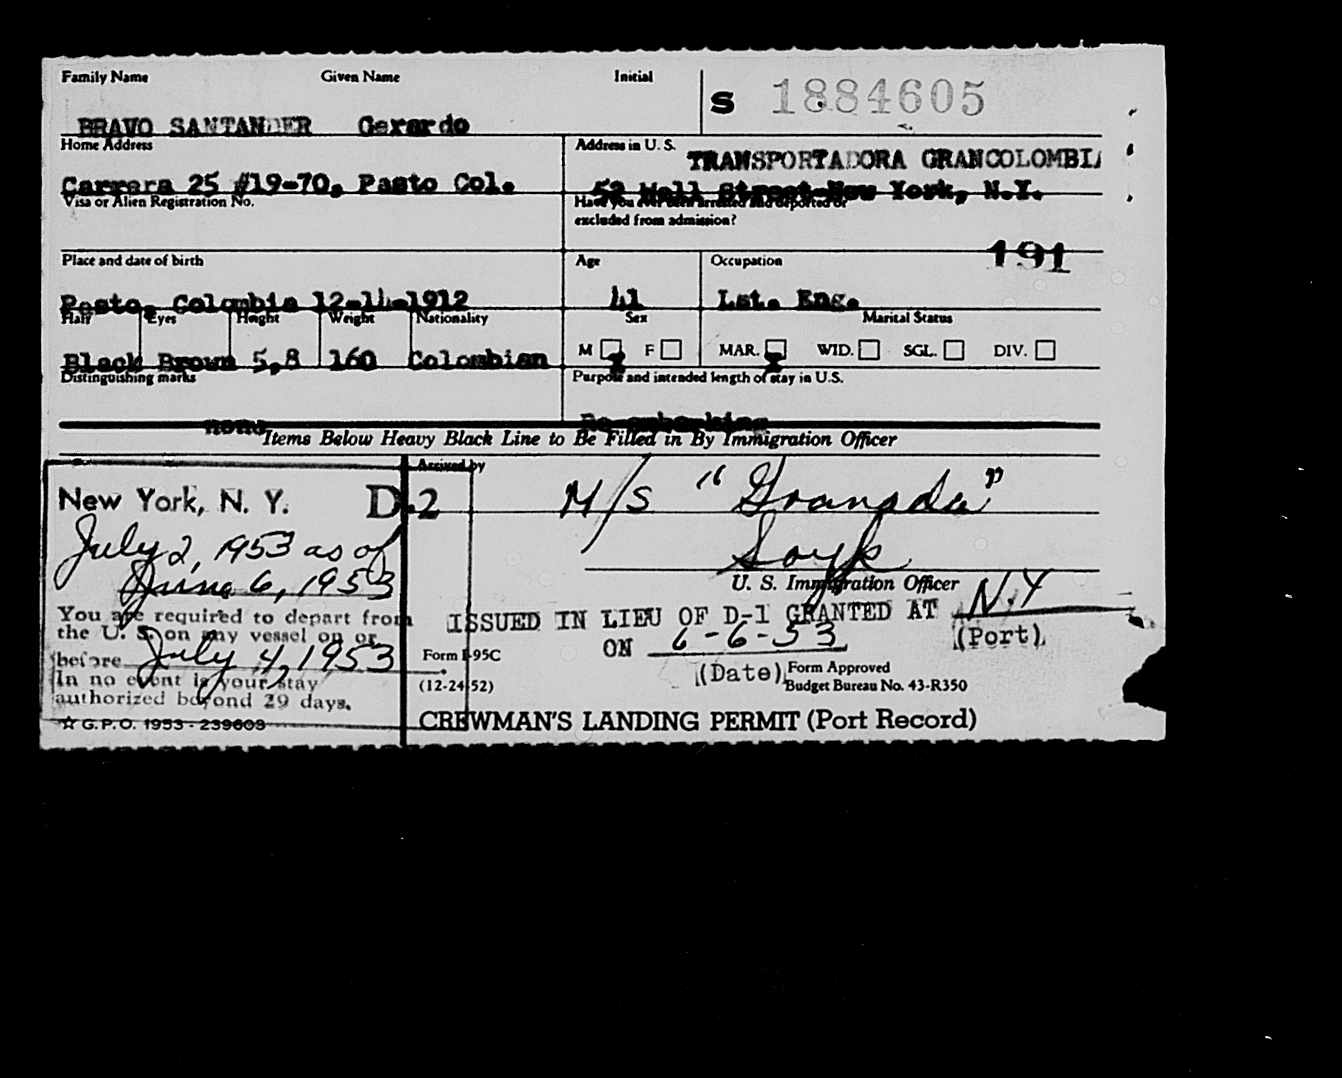 Family Name Given Name Initial
S 1884605
BRAVO SANTANDER Gerardo
Home Address Address in U. S.
TRANSPORTADORA GRANCOLOMBI
Carrera 25 #19-70, Pasto Col. 52 Wall Street-New York, N.Y.
Visa or Alien Registration No. Have you ever been arrested and deported or
excluded from admission?
191
Place and date of birth Age Occupation
Pasto, Colombia 12-14-1912 41 1st. Eng.
Hair Eyes Height Weight Nationality Sex Marital Status
M X F MAR. X WID. SGL. DIV.
Black Brown 5,8 160 Colombian
Distinguishing marks Purpose and intended length of stay in U.S.
none Re-embarking
Items Below Heavy Black Line to Be Filled in By Immigration Officer
Arrived by
New York, N. Y. D-2 M/S "Granada"
July 2, 1953 as of
June 6, 1953
U. S. Immigration Officer
You are required to depart from
the U. S. on any vessel on or
before July 4, 1953
In no event is your stay
authorized beyond 29 days.
ISSUED IN LIEU OF D-1 GRANTED AT N.Y
(Port)
ON 6-6-53
(Date)
Form I-95C
(12-24-52)
Form Approved
Budget Bureau No. 43-R350
☆ G.P.O. 1953-239603
CREWMAN'S LANDING PERMIT (Port Record)